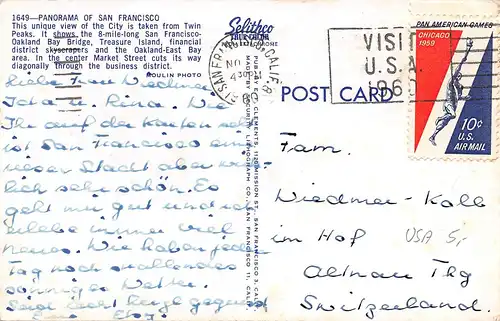 1649—PANORAMA OF SAN FRANCISCO
This unique view of the City is taken from Twin
Peaks. It shows the 8-mile-long San Francisco-
Oakland Bay Bridge, Treasure Island, financial
district skyscrapers and the Oakland-East Bay
area. In the center Market Street cuts its way
diagonally through the business district.
MOULIN PHOTO
Liebe Frau Wiedmer
u. Rina. Wie
Ihr auf der Karte
ist San Francisco eine
Stadt aber
sehr schön. Es
geht mir gut und
erlebe immer viel
neues. Wir haben jeden
Tag noch
Wetter.
Seid recht herzl. gegrüsst
Selithco
TRUE COLOR
SAN FRANCISCO, CALIF.
430PM
PUB. BY E. F. CLEMENTS, MISSION ST., SAN FRANCISCO 3, CALIF.
MADE BY SECURITY LITHOGRAPH CO., SAN FRANCISCO 11, CALIF.
POST CARD
VISIT
U.S.A.
1960
PAN AMERICAN GAMES
CHICAGO
1959
10¢
U.S.
AIR MAIL
Fam.
Wiedmer-Kolb
im Hof
USA 5,-
Altnau Thg
Switzerland.